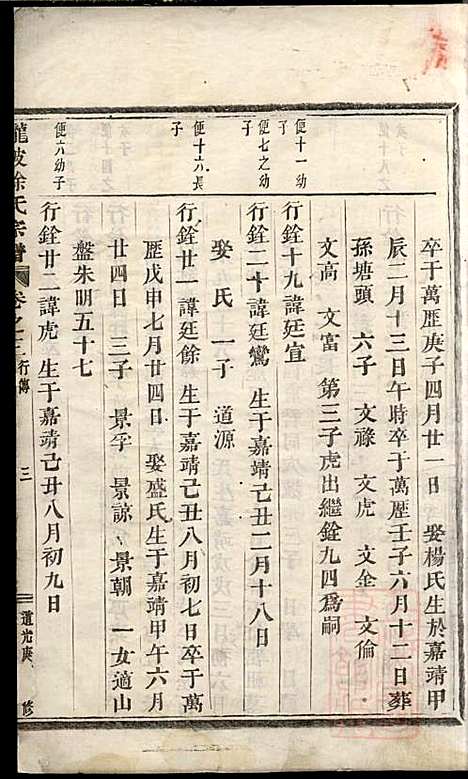 卒于萬歷庚子四月廿一日　娶楊氏生於嘉靖甲
辰二月十三日午時卒于萬歷壬子六月十二日葬
孫塘頭　六子　文祿　文虎　文全　文倫
文高　文富　第三子虎出繼銓九四爲嗣
便十一幼子
行銓十九諱廷宜
便七之幼子
行銓二十諱廷鸞　生于嘉靖己丑二月十八日
娶　氏　一子　道源
便十六長子
行銓廿一諱廷餘　生于嘉靖己丑八月初七日卒于萬
歷戊申七月廿四日　娶盛氏生于嘉靖甲午六月
廿四日　三子　景孚　景諒　景朝　一女適山
盤朱明五十七
便六幼子
行銓廿二諱虎　生于嘉靖己丑八月初九日
龍陂徐氏宗譜　卷之三　行傳　三　道光庚　修